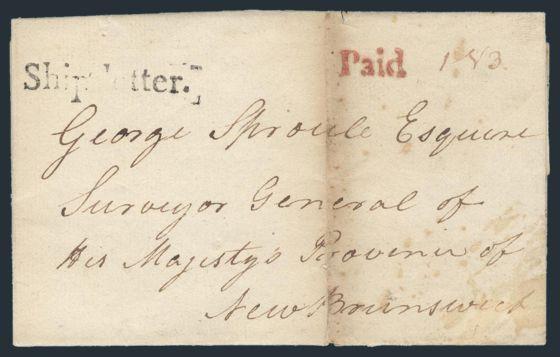 Ship Letter. Paid 1 " 8 " 3
George Sproule Esquire
Surveyor General of
His Majesty's Province of
New Brunswick